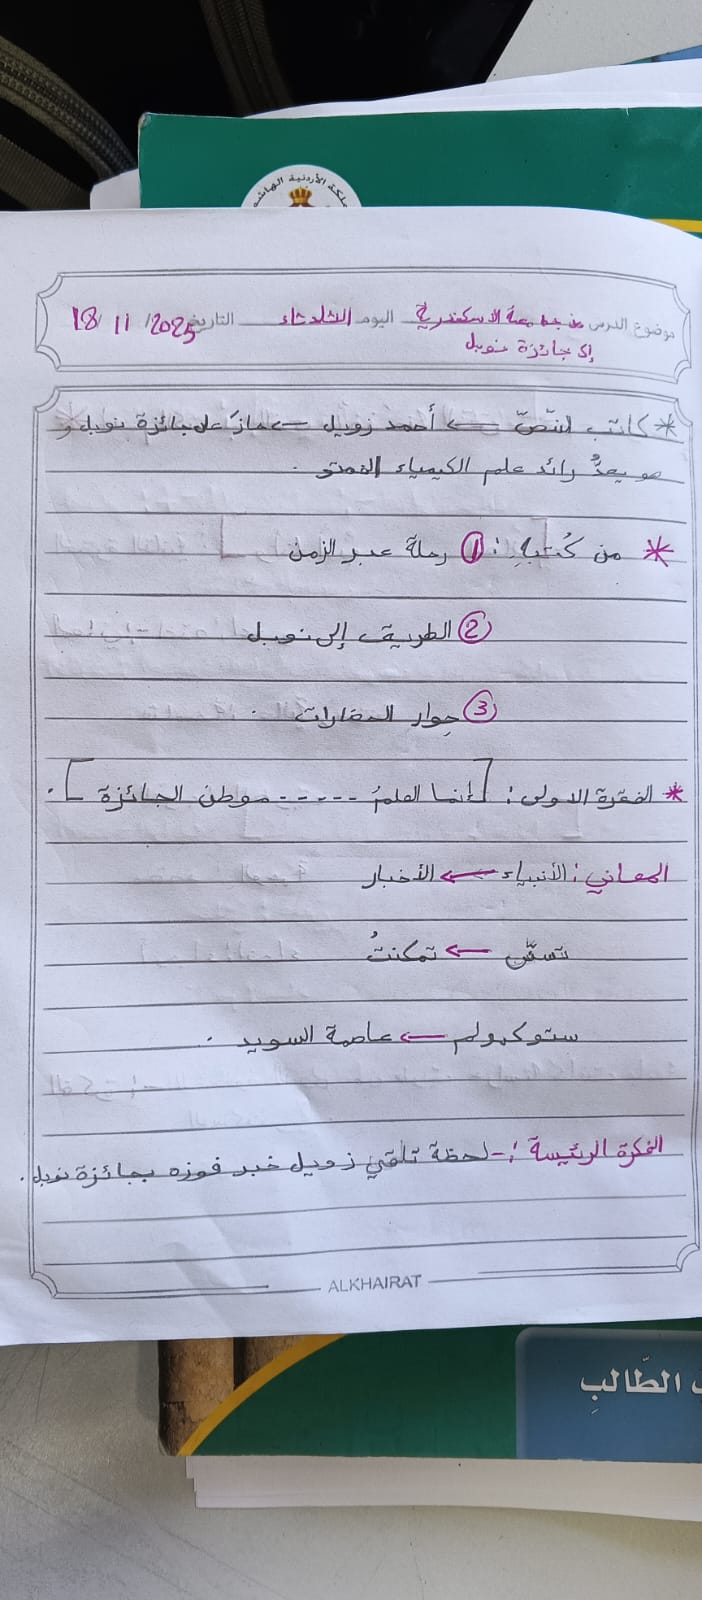 المملكة الأردنية الهاشمية
موضوع الدرس من جامعة الاسكندرية اليوم الثلاثاء التاريخ 18/ 11 /2025
إلى جائزة نوبل
* كاتب النّصّ ← أحمد زويل ← حازَ على جائزة نوبل و
هو يعدُّ رائد علم الكيمياء الفمتو .
* من كُتبهِ : ① رحلة عبر الزمن
② الطريق إلى نوبل
③ حِوار الحضارات .
* الفقرة الاولى : [إنما العلمُ ----- موطن الجائزة ] .
المعاني : الأنباء ← الأخبار
تسنّى ← تمكنتُ
ستوكهولم ← عاصمة السويد .
الفكرة الرئيسة :- لحظة تلقي زويل خبر فوزه بجائزة نوبل .
ALKHAIRAT
الطّالبِ